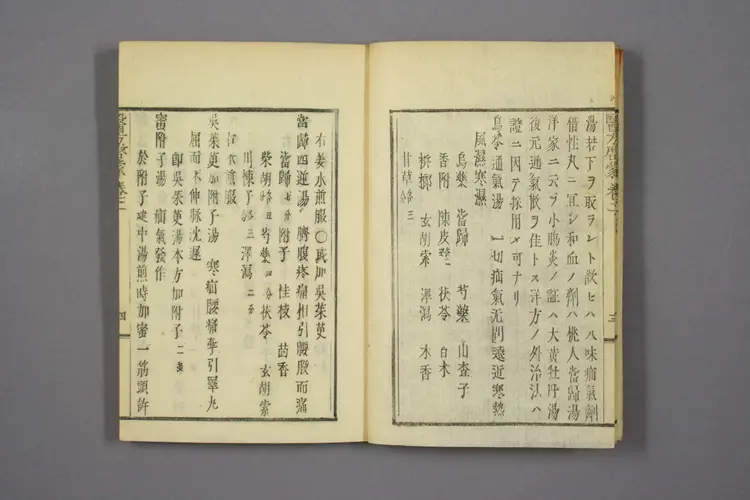 湯若下ヲ取ラント欲セハ八味疝氣劑
偕性丸ニ宜シ和血ノ劑ハ桃人當歸湯
洋家ニ云フ小腸炎ノ証ハ大黄牡丹湯
復元通氣散ヲ佳トス洋方ノ外治法ハ
證ニ因テ採用メ可ナリ
烏苓通氣湯 一切疝氣无問遠近寒熱
風濕寒濕
烏藥 當歸 芍藥 山査子
香附 陳皮 茯苓 白朮
檳榔 玄胡索 澤瀉 木香
甘草 三
醫方啓蒙 卷之二
三
右姜水煎服〇或加吳茱萸
當歸四逆湯 臍腹疼痛相引腰股而痛
當歸 七分 附子 桂枝 茴香
柴胡 芍藥 四分 茯苓 玄胡索
川楝子 各三 澤瀉 二分
右水煎服
吳茱萸加附子湯 寒疝腰痛牽引睪丸
屈而不伸脉沈遲
卽吳茱萸湯本方加附子 二
蜜附子湯 疝氣發作
於附子建中湯煎時加蜜一筋頭許
醫方啓蒙 卷之二
四